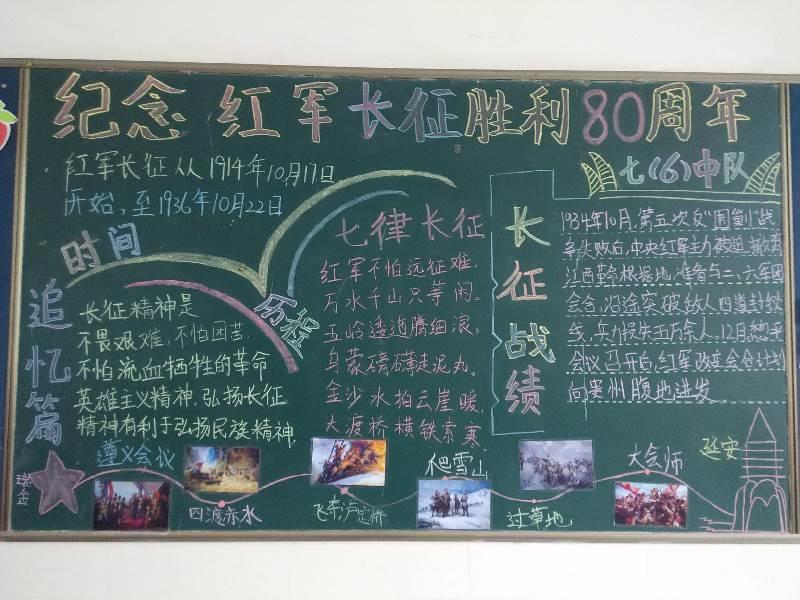 纪念红军长征胜利80周年
七(6)中队
红军长征从1914年10月17日
开始,至1936年10月22日
时间
历程
追忆篇
长征精神是
不畏艰难,不怕困苦,
不怕流血牺牲的革命
英雄主义精神,弘扬长征
精神有利于弘扬民族精神.
七律长征
红军不怕远征难,
万水千山只等闲。
五岭逶迤腾细浪,
乌蒙磅礴走泥丸。
金沙水拍云崖暖,
大渡桥横铁索寒
长征战绩
1934年10月,第五次反"围剿"战
争失败后,中央红军主力被迫撤离
江西革命根据地,准备与二、六军团
会合,沿途突破敌人四道封锁
线,兵力损失五万余人,12月
会议召开后,红军改变会合计划
向贵州腹地进发
瑞金
遵义会议
四渡赤水
飞夺泸定桥
爬雪山
过草地
大会师
延安